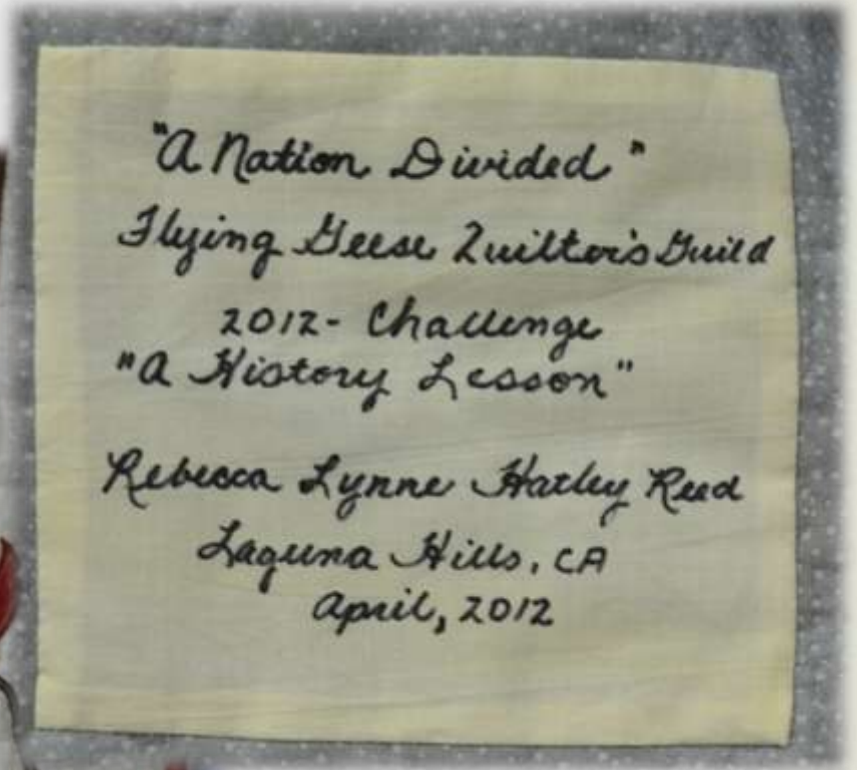 "A Nation Divided"
Flying Geese Quilter's Guild
2012- Challenge
"A History Lesson"
Rebecca Lynne Hatley Reed
Laguna Hills, CA
April, 2012